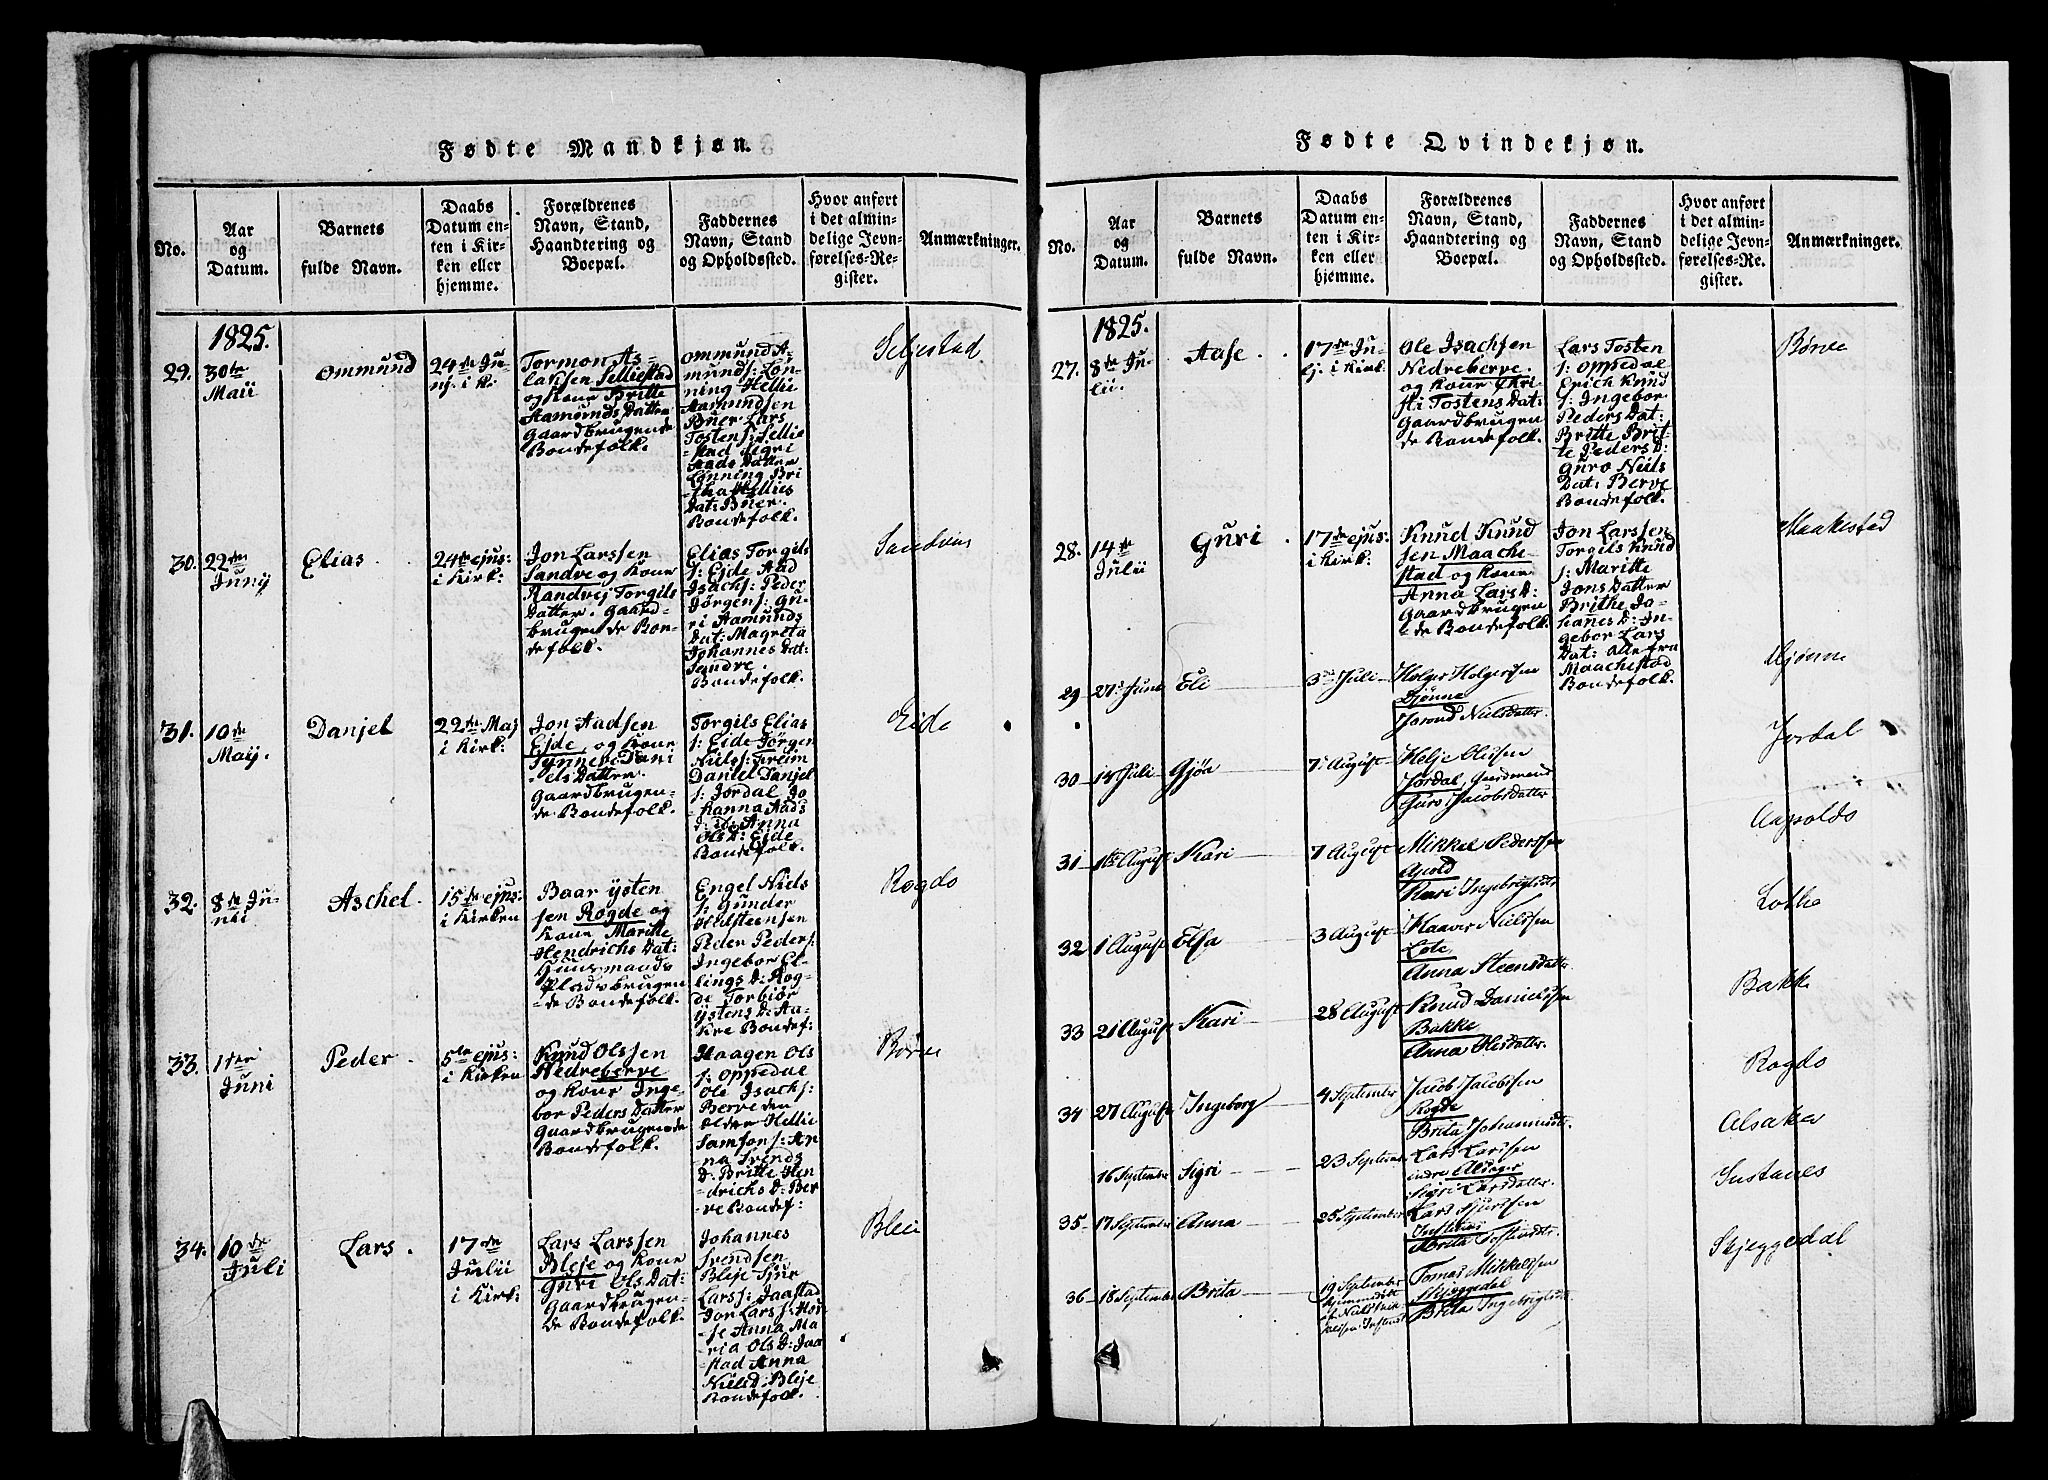 Fødte Mandkjøn.
No.
Aar
og
Datum.
Barnets
fulde Navn.
Daabs
Datum en-
ten i Kir-
ken eller
hjemme.
Forældrenes
Navn, Stand,
Haandtering og
Boepæl.
Faddernes
Navn, Stand
og Opholdssted.
Hvor anført
i det almin-
delige Jevn-
førelses-Re-
gister.
Anmærkninger.
1825.
29.
30te
Maii
Ommund
24de Ju-
nj. i K.
Tormon As-
laksen Selliestad
og Kone Britte
Aamunds Datter
Gaardbrugende
Bondefolk.
Ommund A-
munds: Løn-
ning Hellie
Aamundsen
Buer Lars
Tostens: Sellie
-stad Sigri
Aads Datter
Lønning Bri
-tha Hellies
Dat: Buer.
Bondefolk.
Seljestad
30.
22de
Junij
Elias.
24de ejus:
i Kirk:
Jon Larssen
Sandve og Kone
Randvej Torgils
Datter. Gaard-
brugende Bon-
defolk.
Elias Torgils
s: Ejde Aad
Isachs: Peder
Jørgens: Gu-
ri Aamunds
Dat: Magreta
Johannes Dat:
Sandve.
Bondefolk.
Sandven
31.
10de
Maij.
Danjel
22de Maj
i Kirk:
Jon Aadsen
Ejde og Kone
Synneve Dani
els Datter.
Gaardbrugen-
de Bondefolk.
Torgils Elias
s: Ejde Jørgen
Niels: Freim
Daniel Danjel
s: Jordal Jo
-hanna Aads
D: ib: Anna
Ols D: Ejde
Bondefolk.
Eide
32.
8de Ju-
nii
Aschel.
15de ejus:
i Kirken
Baar Ysten
sen Rogde og
Kone Maritte
Hendrichs Dat:
Huusmands
Pladsbrugen
-de Bondefolk.
Engel Niels
s: Gunder
Peder Peders:
Ingebor El-
lings D: Rog-
de Torbiør
Ystens D: Aa-
kre Bondef:
Rogdo
33.
1ster
Juni
Peder
5te ejus:
i Kirken
Knud Olssen
Nedreberve
og Kone Inge
bor Peders Datter
Gaardbrugende
Bondefolk.
Haagen Ols
s: Oppedal
Ole Isachs:
Berve den
older Hellie
Samsons: An
na Svends
D: Britte Hen
drichs D: Ber
ve Bondef:
Børve
34.
10de
Juli
Lars.
17de
Julii
i Kirk:
Lars Larssen
Bleje og Kone
Guri Ols Dat:
Gaardbrugen-
de Bondefolk.
Johannes
Svendsen
Bleje Sjur
Larss: Jaastad
Jon Larss: Hov
se Anna Ma
ria Ols D: Jaa
-stad Anna
Niels D: Bleje
Bondefolk.
Bleie
Fødte Qvindekjøn.
No.
Aar
og
Datum.
Barnets
fulde Navn.
Daabs
Datum en-
ten i Kir-
ken eller
hjemme.
Forældrenes
Navn, Stand,
Haandtering og
Boepæl.
Faddernes
Navn, Stand
og Opholdssted.
Hvor anført
i det almin-
delige Jevn-
førelses-Re-
gister.
Anmærkninger.
1825.
27.
8de Ju-
lii.
Aase.
17de Ju-
lj. i Kirk:
Ole Isachsen
Nedreberve.
og Kone Chri
sti Tostens Dat:
Gaardbrugen
de Bondefolk.
Lars Tosten
s: Oppedal
Erich Knud
s: Ingebor
Peders Dat:
Britte Brit-
te Peders D:
Guro Niels
Dat: Berve
Bondefolk.
Børve
28.
14de
Julii
Guri.
17de ejus:
i Kirk:
Knud Knud
sen Maache
stad og Kone
Anna Lars D:
Gaardbrugen
-de Bondefolk.
Jon Larssen
Torgils Knud
s: Maritte
Jons Datter
Brithe Jo-
hanes D: In-
gebor Lars
Dat: alle fra
Maachestad
Bondefolk.
Maakestad
29
27de Juni
Eli
3de Juli
Holger Holgersen
Djönne
Jorond Nielsdatter.
Djönne
30
18 Juli
Gjøa
7. August
Helje Olesen
Jordal, Gaardmand
Guro Jacobsdatter
Jordal
31
1ste August
Kari
7 August
Mikkel Pederssen
Apold
Kari Ingebrigtsdtr
Aapoldo
32
1 August
Elsa
3 August
Haaver Nielssen
Lote
Anna Steensdatter
Lothe
33
21 August
Kari
28 August
Knud Danielssen
Bakke
Anna Olesdatter.
Bakke
34
27 August
Ingeborg
4 September
Jacob Jacobssen
Rogde
Brita Johannesdtr.
Rogdo
16 September
Sigri
23 September
Lars Larssen
indre Alsager
Sigri Larsdatter
Alsaker
35
17 September
Anna
25 September
Lars Sjurssen
Instenæs
Brita Tostensdtr.
Instanes
36
18 September
Brita
19 September
hjemmedøbt
Tomas Mikkelsen
Skjeggedal
Brita Ingebrigtsdtr.
Skjeggedal